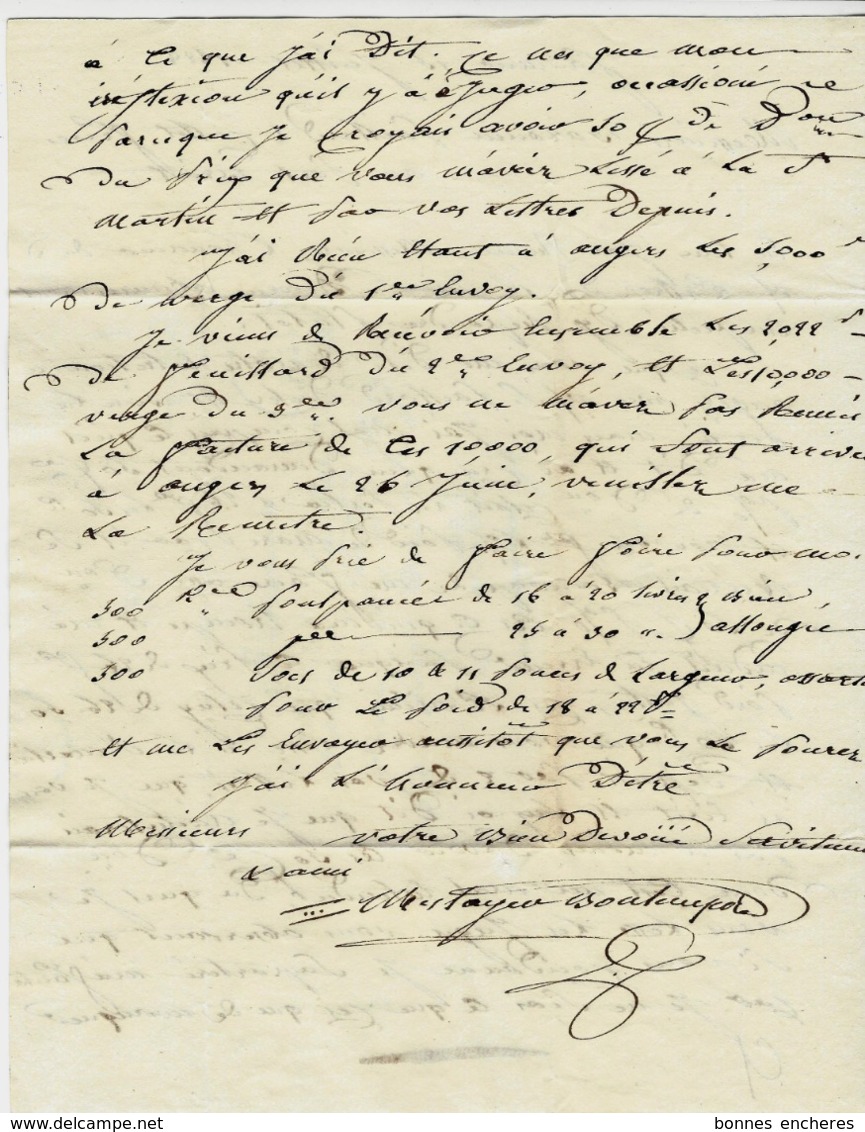 à ce que j'ai Dit. je nes que mon
iréflexion qu'il y à à juger, occassioné
parceque je croyais avoir 50
Du prix que vous m'aviez Lissé à La St
martin et par vos Lettres Depuis.
J'ai Réeu Etant à angers Les 5,000
De verge du 1er Envoy.
Je viens de Recevoir Ensemble Les 2022
De feuillard du 2me Envoy, et Les 10,000
verge du 3me. vous ne m'avez pas Remis
La facture de Ces 10000, qui sont arrivé
à angers Le 26 Juin, veuillez me
La Remettre.
Je vous prie de faire faire pour mo
300 de 16 à 20 livres Bien
300 25 à 30 allongée
300 Socs de 10 à 11 pouces de Largeur,
pour Le poid de 18 à 22
et me Les Envoyer aussitôt que vous Le pourez
J'ai L'honneur D'être
Messieurs votre Bien Devoüé Serviteur
& ami
Mestayer
bonnes encheres